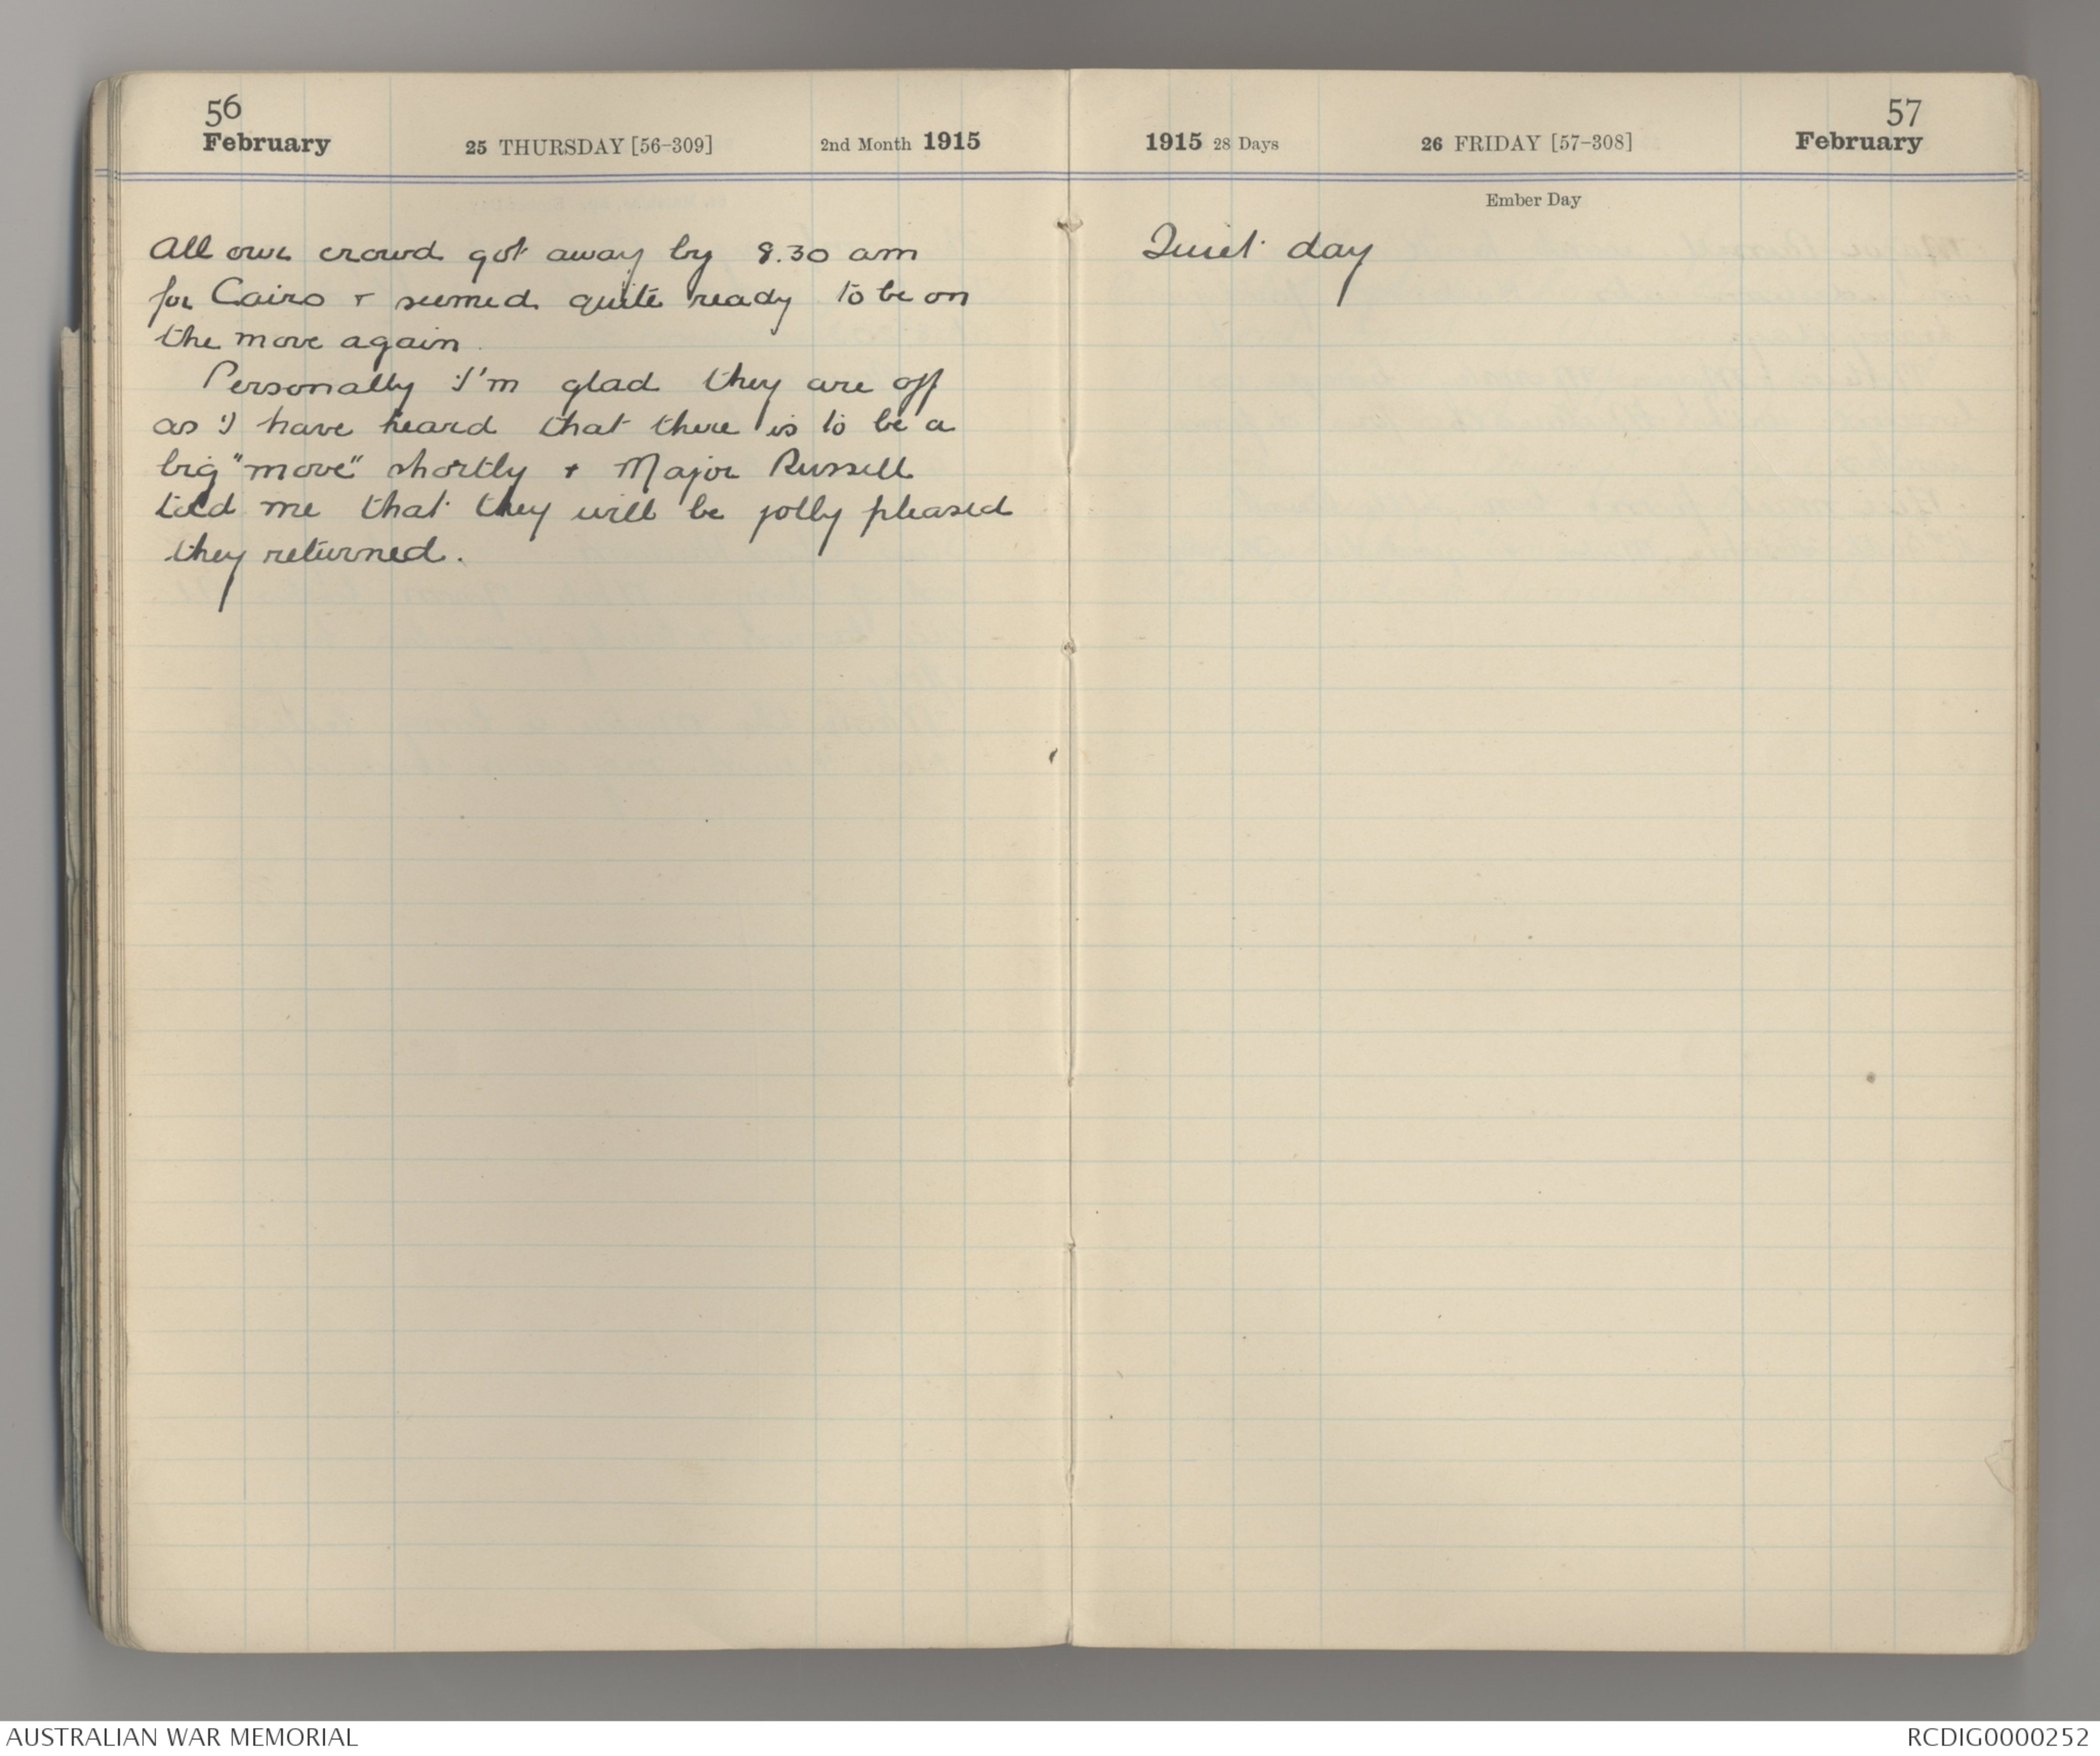 56
February 25 THURSDAY [56-309] 2nd Month 1915
All our crowd got away by 8.30 am
for Cairo + seemed quite ready to be on
the move again.
Personally I'm glad they are off
as I have heard that there is to be a
big "move" shortly + Major Russell
told me that they will be jolly pleased
they returned.
57
1915 28 Days 26 FRIDAY [57-308] February
Ember Day
Quiet day
AUSTRALIAN WAR MEMORIAL
RCDIG0000252